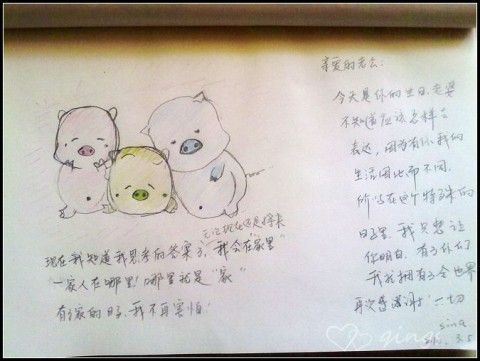 无论现在还是将来
现在我知道我思考的答案了，我会在"家里"
一家人在哪里！哪里就是"家"
有家的日子，我不再害怕！
亲爱的老公：
今天是你的生日，老婆
不知道应该怎样去
表达，因为有你我的
生活因此而不同，
所以在这个特殊的
日子里，我只想让
你明白，有了你们
我就拥有了全世界
再次感谢 一切
sina
3.5
qing